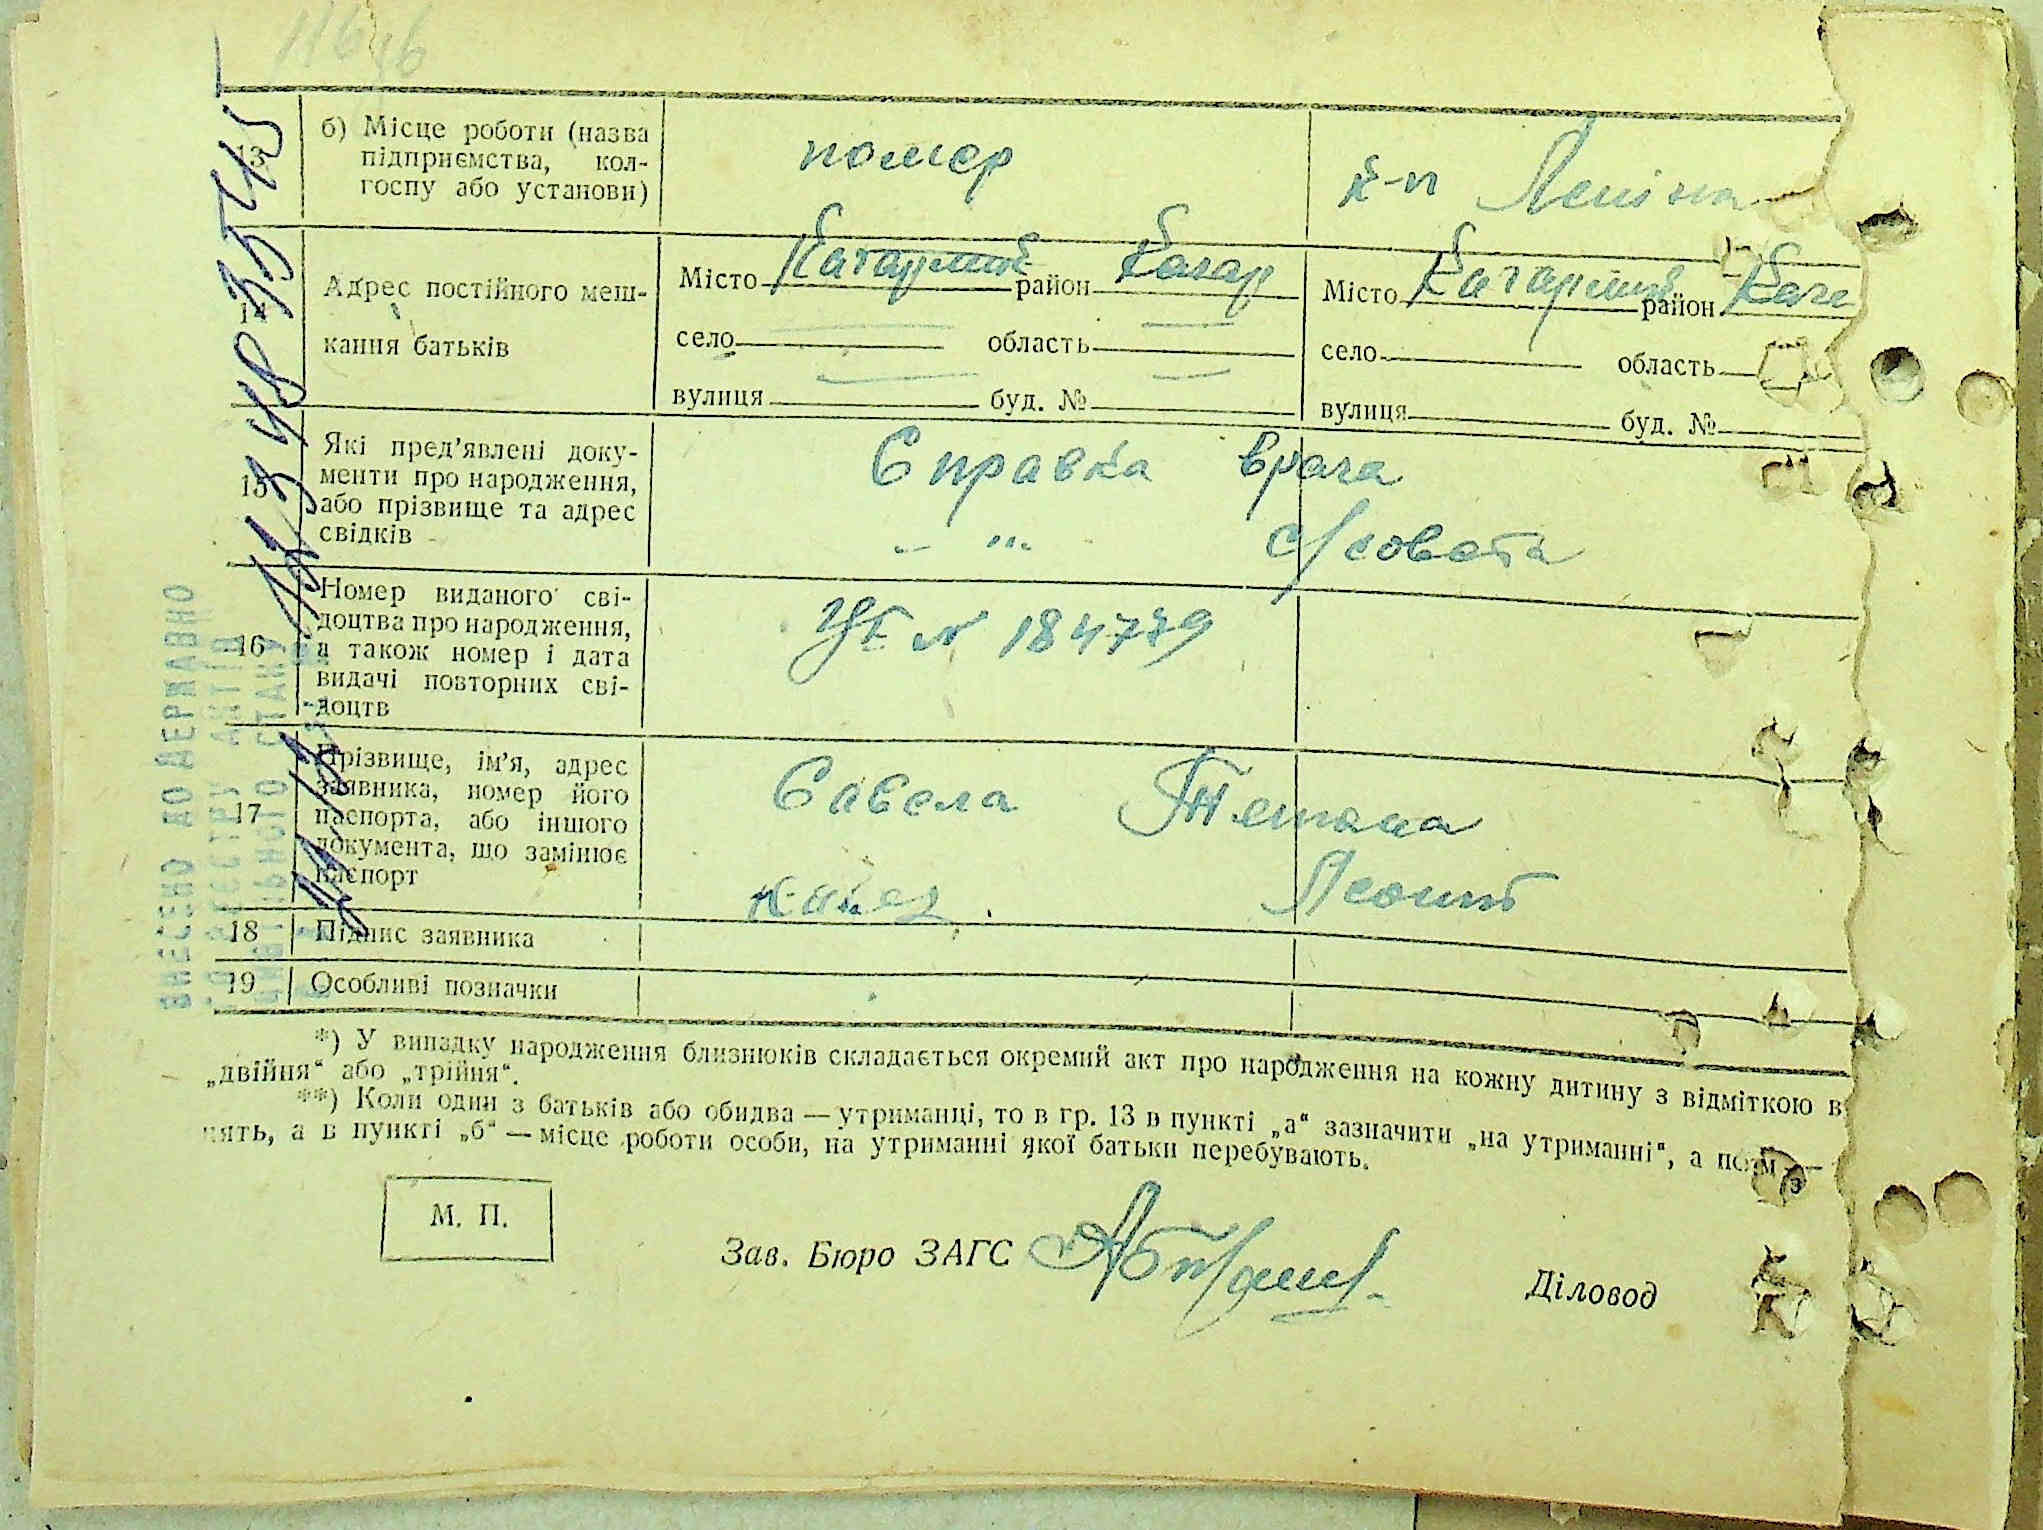 11646
13 б) Місце роботи (назва
підприємства, кол-
госпу або установи)
помер
к-п Леніна
14 Адрес постійного меш-
кання батьків
Місто Кагарлик район Кагар
село область
вулиця буд. №
Місто Кагарлик район Кага
село область
вулиця буд. №
15 Які пред’явлені доку-
менти про народження,
або прізвище та адрес
свідків
Справка врача
-"- с/совета
16 Номер виданого сві-
доцтва про народження,
а також номер і дата
видачі повторних сві-
доцтв
УБ № 184779
17 Прізвище, ім’я, адрес
заявника, номер його
паспорта, або іншого
документа, що замінює
паспорт
Савела Тетяна
18 Підпис заявника
19 Особливі позначки
*) У випадку народження близнюків складається окремий акт про народження на кожну дитину з відміткою в
„двійня“ або „трійня“.
**) Коли один з батьків або обидва — утриманці, то в гр. 13 в пункті „а“ зазначити „на утриманні“, а потім —
нять, а в пункті „б“ — місце роботи особи, на утриманні якої батьки перебувають.
М. П.
Зав. Бюро ЗАГС
Діловод
ВНЕСЕНО ДО ДЕРЖАВНО
ГО РЕЄСТРУ АКТІВ
ЦИВІЛЬНОГО СТАНУ